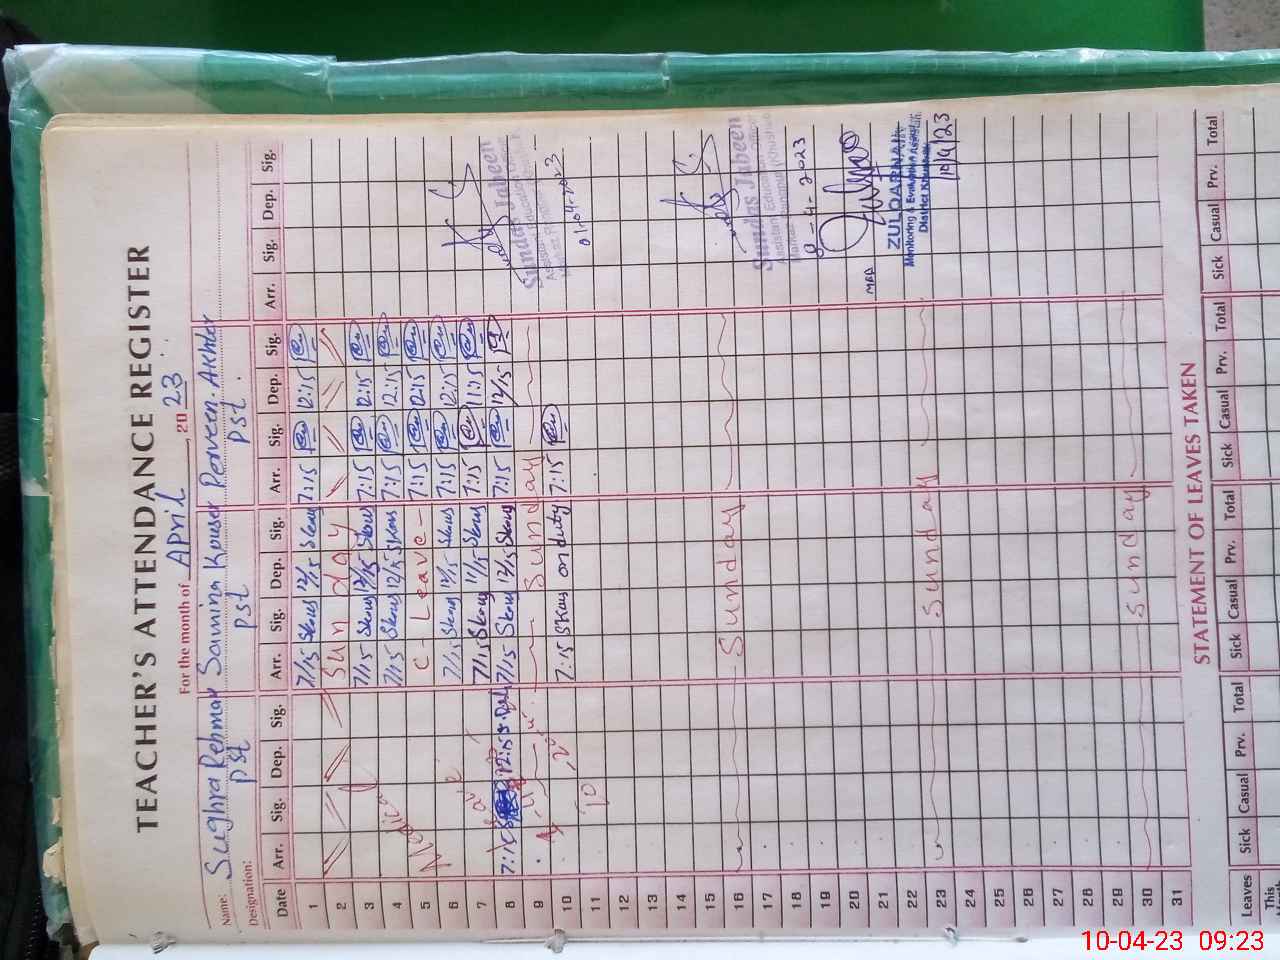 TEACHER'S ATTENDANCE REGISTER
For the month of APril, 20 23
Name: Sughra Rehman Samina Kouser Perveen Akhter
Designation: PSt PSt PSt
Date Arr. Sig. Dep. Sig. Arr. Sig. Dep. Sig. Arr. Sig. Dep. Sig. Arr. Sig. Dep. Sig.
1 7/15 12/15 7:15 12:15
2 Sunday
3 7/15 12/15 7:15 12:15
4 7/15 12/15 7:15 12:15
5 C - Leave - 7:15 12:15
6 7/15 12/15 7:15 12:15
7 7/15 11/15 7:15 11:15
8 7:15 12:15 7/15 12/15 7:15 12/15
9 Sunday
10 7:15 on duty 7:15
11
12
13
14
15
16 Sunday
17
18
19
20
21
22
23 Sunday
24
25
26
27
28
29
30 Sunday
31
Sundas Jabeen
01-04-2023
Sundas Jabeen
Assistant Education Officer
8-4-2023
MEA
ZULQARNAIN
Monitoring & Evaluation Assistant
District Khushab
10/4/23
STATEMENT OF LEAVES TAKEN
Leaves Sick Casual Prv. Total Sick Casual Prv. Total Sick Casual Prv. Total Sick Casual Prv. Total
This
Month
10-04-23 09:23